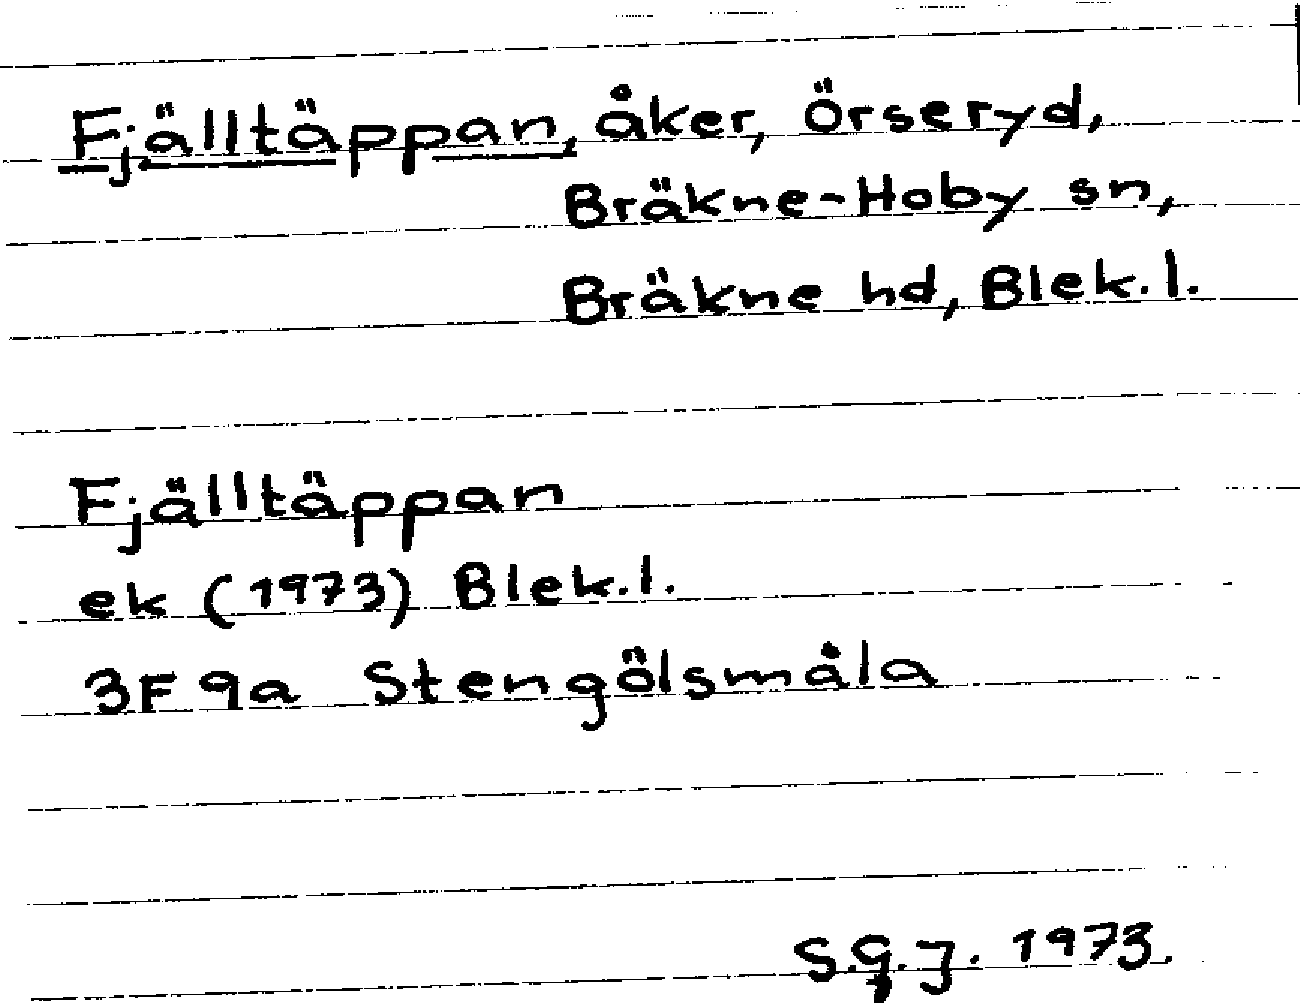 Fjälltäppan, åker, Örseryd,
Bräkne-Hoby sn,
Bräkne hd, Blek.l.
Fjälltäppan
ek (1973) Blek.l.
3F 9a Stengölsmåla
S.g.J. 1973.